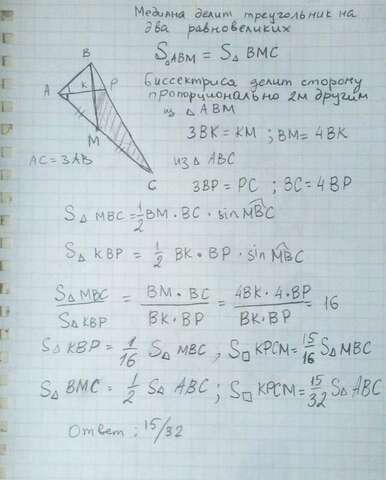 Медиана делит треугольник на
два равновеликих
S△ABM = S△BMC
Биссектриса делит сторону
пропорционально 2м другим
из △ABM
3BK = KM ; BM = 4BK
B
A
K
P
M
C
AC = 3AB
из △ ABC
3BP = PC ; BC = 4BP
S△ MBC = 1/2 BM · BC · sin MBC
S△ KBP = 1/2 BK · BP · sin MBC
S△ MBC / S△ KBP = BM · BC / BK · BP = 4BK · 4 · BP / BK · BP = 16
S△ KBP = 1/16 S△ MBC , S□ KPCM = 15/16 S△ MBC
S△ BMC = 1/2 S△ ABC ; S□ KPCM = 15/32 S△ ABC
Ответ : 15/32